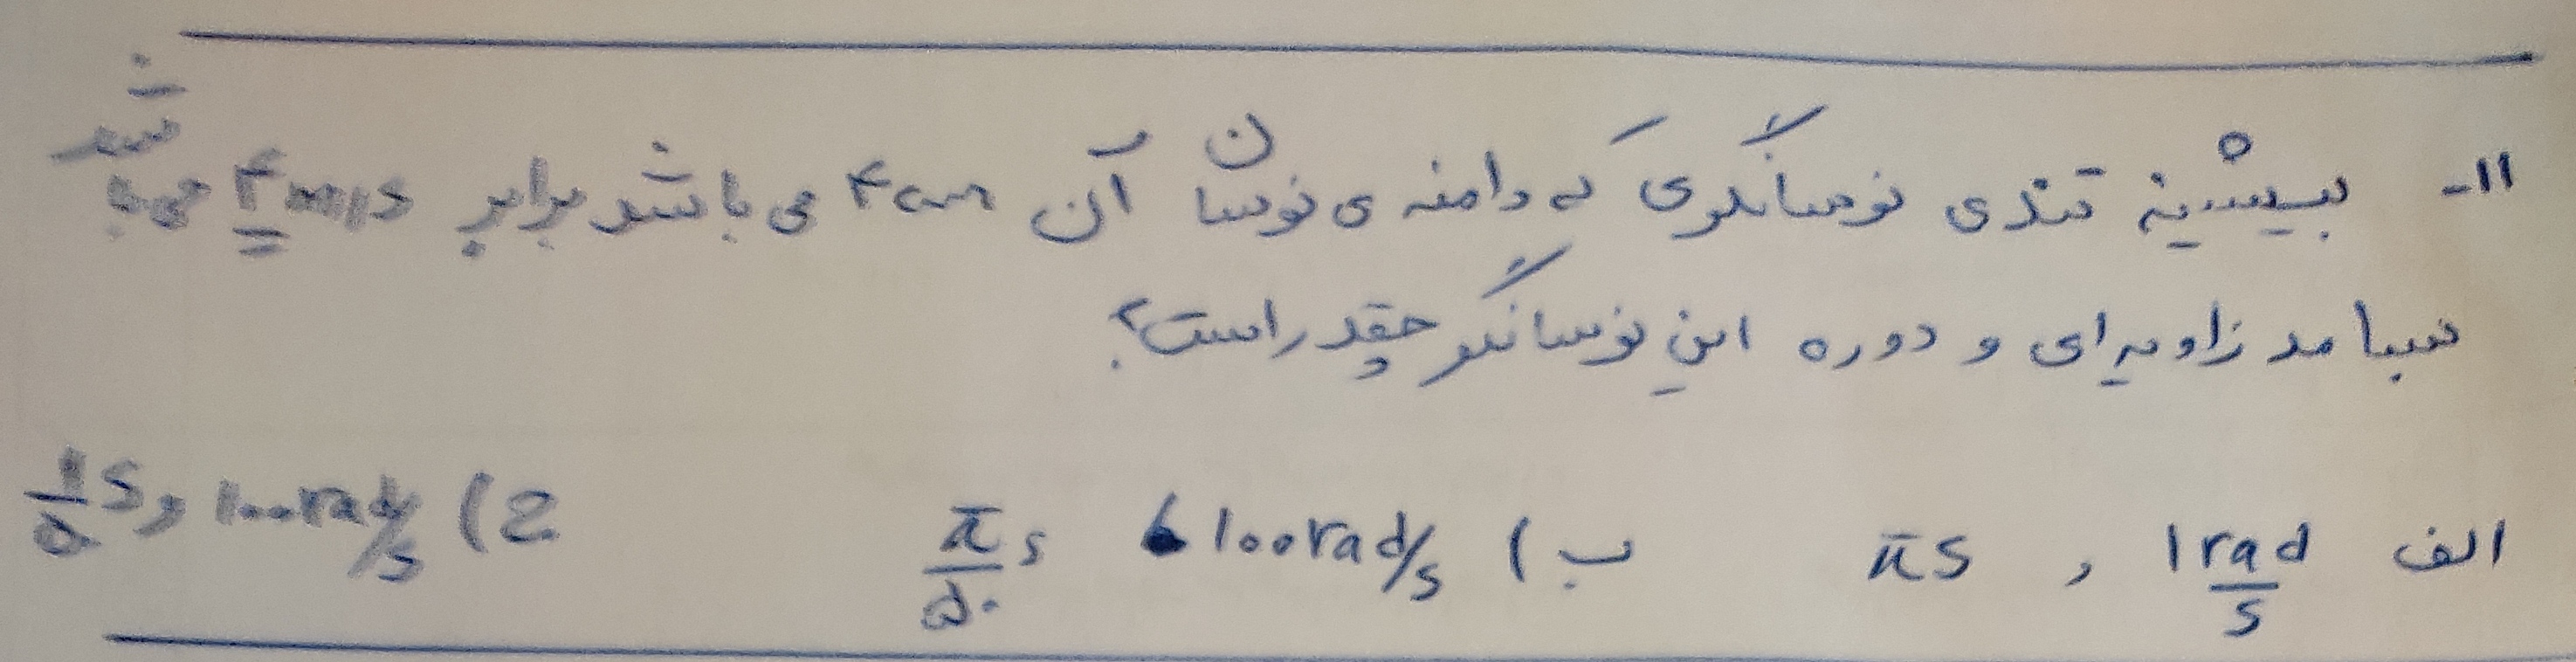 ۱۱- بیشینه تندی نوسانگری که دامنه ی نوسان آن ۴cm می باشد برابر ۴m/s می باشد
بسامد زاویه ای و دوره این نوسانگر چقدر است؟
الف 1rad/s , πs ب) 100rad/s و π/۵۰ s ج) 100rad/s و 1/۵۰ s